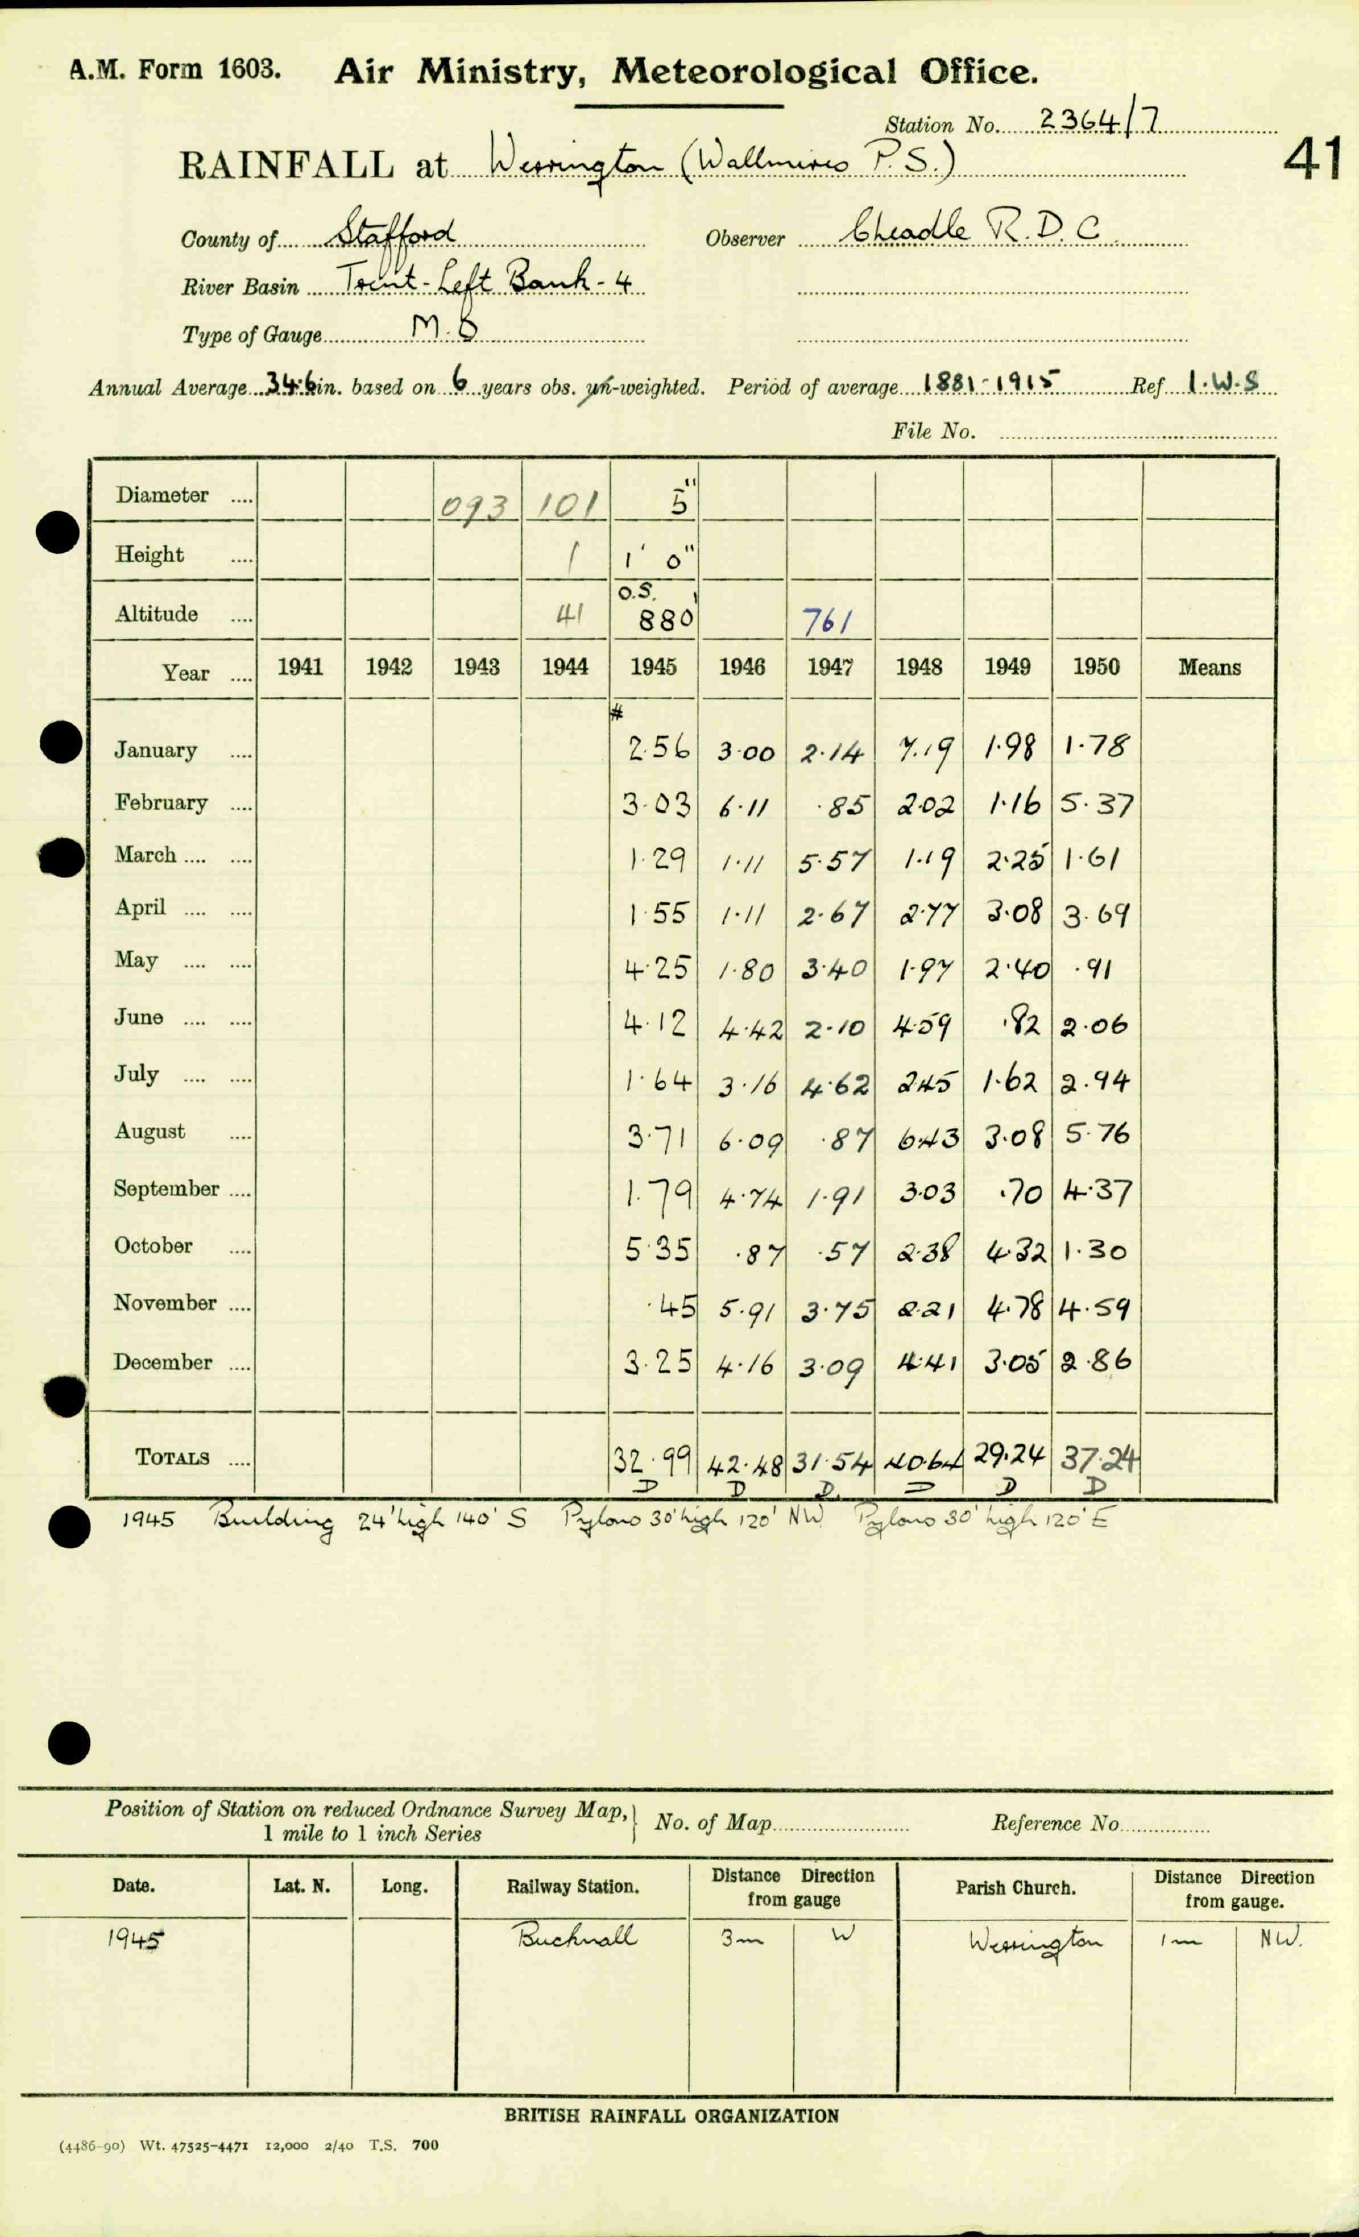 A.M. Form 1603. Air Ministry, Meteorological Office.
Station No. 2364/7
41
RAINFALL at Werrington (Wallmires P.S.)
County of Stafford Observer Cheadle R.D.C.
River Basin Trent-Left Bank-4
Type of Gauge M.O
Annual Average 34.6 in. based on 6 years obs. un-weighted. Period of average 1881-1915 Ref I.W.S
File No.
Diameter .... 093 101 5"
Height .... 1 1' 0"
Altitude .... 41 O.S. 880' 761
Year .... 1941 1942 1943 1944 1945 1946 1947 1948 1949 1950 Means
#
January .... 2.56 3.00 2.14 7.19 1.98 1.78
February .... 3.03 6.11 .85 2.02 1.16 5.37
March .... .... 1.29 1.11 5.57 1.19 2.25 1.61
April .... .... 1.55 1.11 2.67 2.77 3.08 3.69
May .... .... 4.25 1.80 3.40 1.97 2.40 .91
June .... .... 4.12 4.42 2.10 4.59 .82 2.06
July .... .... 1.64 3.16 4.62 2.45 1.62 2.94
August .... 3.71 6.09 .87 6.43 3.08 5.76
September .... 1.79 4.74 1.91 3.03 .70 4.37
October .... 5.35 .87 .57 2.38 4.32 1.30
November .... .45 5.91 3.75 2.21 4.78 4.59
December .... 3.25 4.16 3.09 4.41 3.05 2.86
TOTALS .... 32.99 42.48 31.54 40.64 29.24 37.24
D D D D D D
1945 Building 24' high 140' S Pylons 30' high 120' NW. Pylons 30' high 120' E
Position of Station on reduced Ordnance Survey Map, 1 mile to 1 inch Series } No. of Map Reference No.
Date. Lat. N. Long. Railway Station. Distance Direction from gauge Parish Church. Distance Direction from gauge.
1945 Bucknall 3m W Werrington 1m NW.
BRITISH RAINFALL ORGANIZATION
(4486-90) Wt. 47525-4471 12,000 2/40 T.S. 700